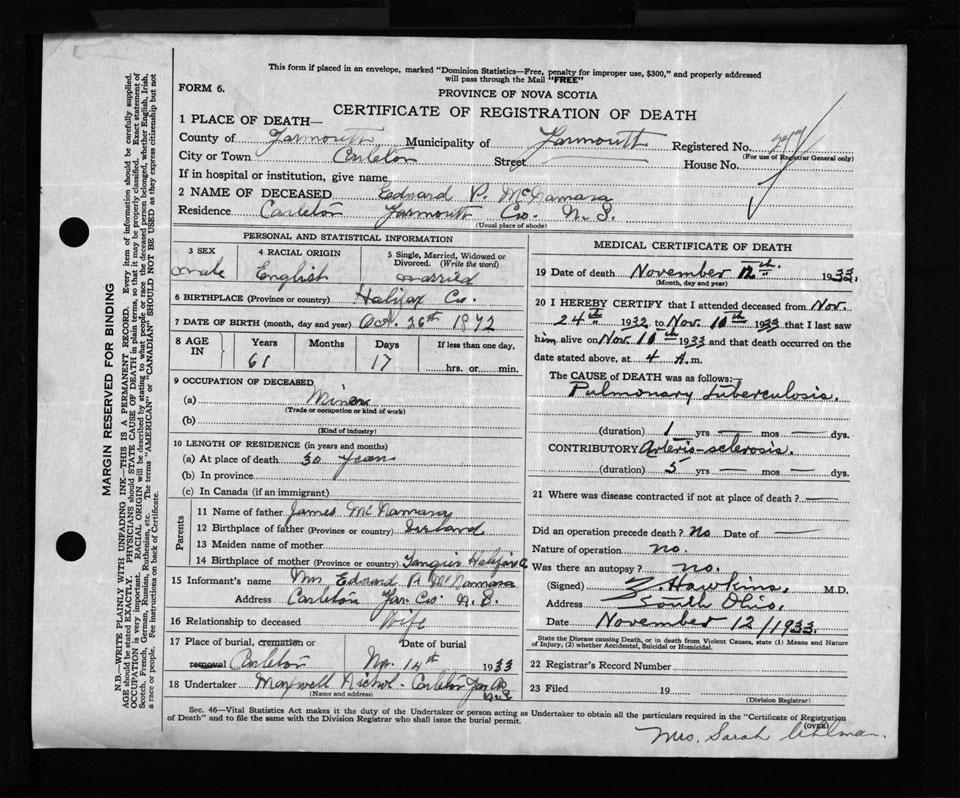 This form if placed in an envelope, marked "Dominion Statistics—Free, penalty for improper use, $300," and properly addressed
will pass through the Mail "FREE"
FORM 6.
PROVINCE OF NOVA SCOTIA
CERTIFICATE OF REGISTRATION OF DEATH
1 PLACE OF DEATH—
County of Yarmouth Municipality of Yarmouth Registered No.
(For use of Registrar General only)
City or Town Carleton Street House No.
If in hospital or institution, give name
2 NAME OF DECEASED Edward P. McNamara
Residence Carleton Yarmouth Co. N.S.
(Usual place of abode)
PERSONAL AND STATISTICAL INFORMATION
3 SEX
male
4 RACIAL ORIGIN
English
5 Single, Married, Widowed or
Divorced. (Write the word)
married
6 BIRTHPLACE (Province or country) Halifax Co.
7 DATE OF BIRTH (month, day and year) Oct. 26th 1872
8 AGE
IN
Years Months Days If less than one day.
61 17 hrs. or min.
9 OCCUPATION OF DECEASED
(a) Miner
(Trade or occupation or kind of work)
(b)
(Kind of industry)
10 LENGTH OF RESIDENCE (in years and months)
(a) At place of death 30 years
(b) In province
(c) In Canada (if an immigrant)
Parents
11 Name of father James McNamara
12 Birthplace of father (Province or country) Ireland
13 Maiden name of mother
14 Birthplace of mother (Province or country) Tangier Halifax Co
15 Informant's name Mrs Edward P. McNamara
Address Carleton Yar. Co. N.S.
16 Relationship to deceased Wife
17 Place of burial, cremation or
removal Carleton
Date of burial
Nov. 14th 1933
18 Undertaker Maxwell Nichol - Carleton Yar. Co
N.S.
(Name and address)
MEDICAL CERTIFICATE OF DEATH
19 Date of death November 12th 1933.
(Month, day and year)
20 I HEREBY CERTIFY that I attended deceased from Nov.
24th 1932 to Nov. 10th 1933 that I last saw
him alive on Nov. 10th 1933 and that death occurred on the
date stated above, at 4 A.m.
The CAUSE of DEATH was as follows:—
Pulmonary tuberculosis.
(duration) 1 yrs — mos — dys.
CONTRIBUTORY Arterio-sclerosis.
(duration) 5 yrs — mos — dys.
21 Where was disease contracted if not at place of death? —
Did an operation precede death? No Date of —
Nature of operation no.
Was there an autopsy? no.
(Signed) Z. Hawkins, M.D.
Address South Ohio.
Date November 12/1933.
State the Disease causing Death, or in death from Violent Causes, state (1) Means and Nature
of Injury, (2) whether Accidental, Suicidal or Homicidal.
22 Registrar's Record Number
23 Filed 19
(Division Registrar)
Sec. 46—Vital Statistics Act makes it the duty of the Undertaker or person acting as Undertaker to obtain all the particulars required in the "Certificate of Registration
of Death" and to file the same with the Division Registrar who shall issue the burial permit.
(OVER)
Mrs. Sarah Uhlman.
MARGIN RESERVED FOR BINDING
N.B.—WRITE PLAINLY WITH UNFADING INK—THIS IS A PERMANENT RECORD. Every item of information should be carefully supplied.
AGE should be stated EXACTLY. PHYSICIANS should STATE CAUSE OF DEATH in plain terms, so that it may be properly classified. Exact statement of
OCCUPATION is very important. RACIAL ORIGIN will be described by stating to what people or race the deceased person belonged, whether English, Irish,
Scotch, French, German, Russian, Ruthenian, etc. The terms "AMERICAN" or "CANADIAN" SHOULD NOT BE USED as they express citizenship but not
a race or people. See instructions on back of Certificate.